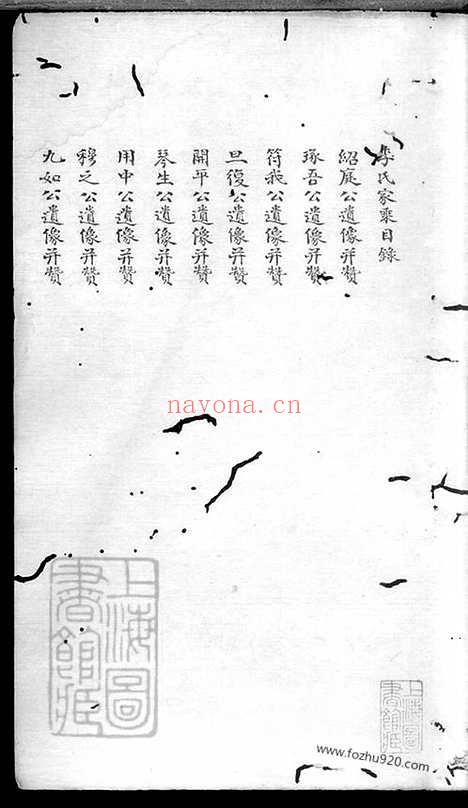 李氏家乘目錄
紹庭公遺像并贊
琢吾公遺像并贊
符我公遺像并贊
旦復公遺像并贊
開平公遺像并贊
琴生公遺像并贊
用中公遺像并贊
穆之公遺像并贊
九如公遺像并贊
nayona.cn
上海圖書館藏
上海圖書館藏
www.fozhu920.com